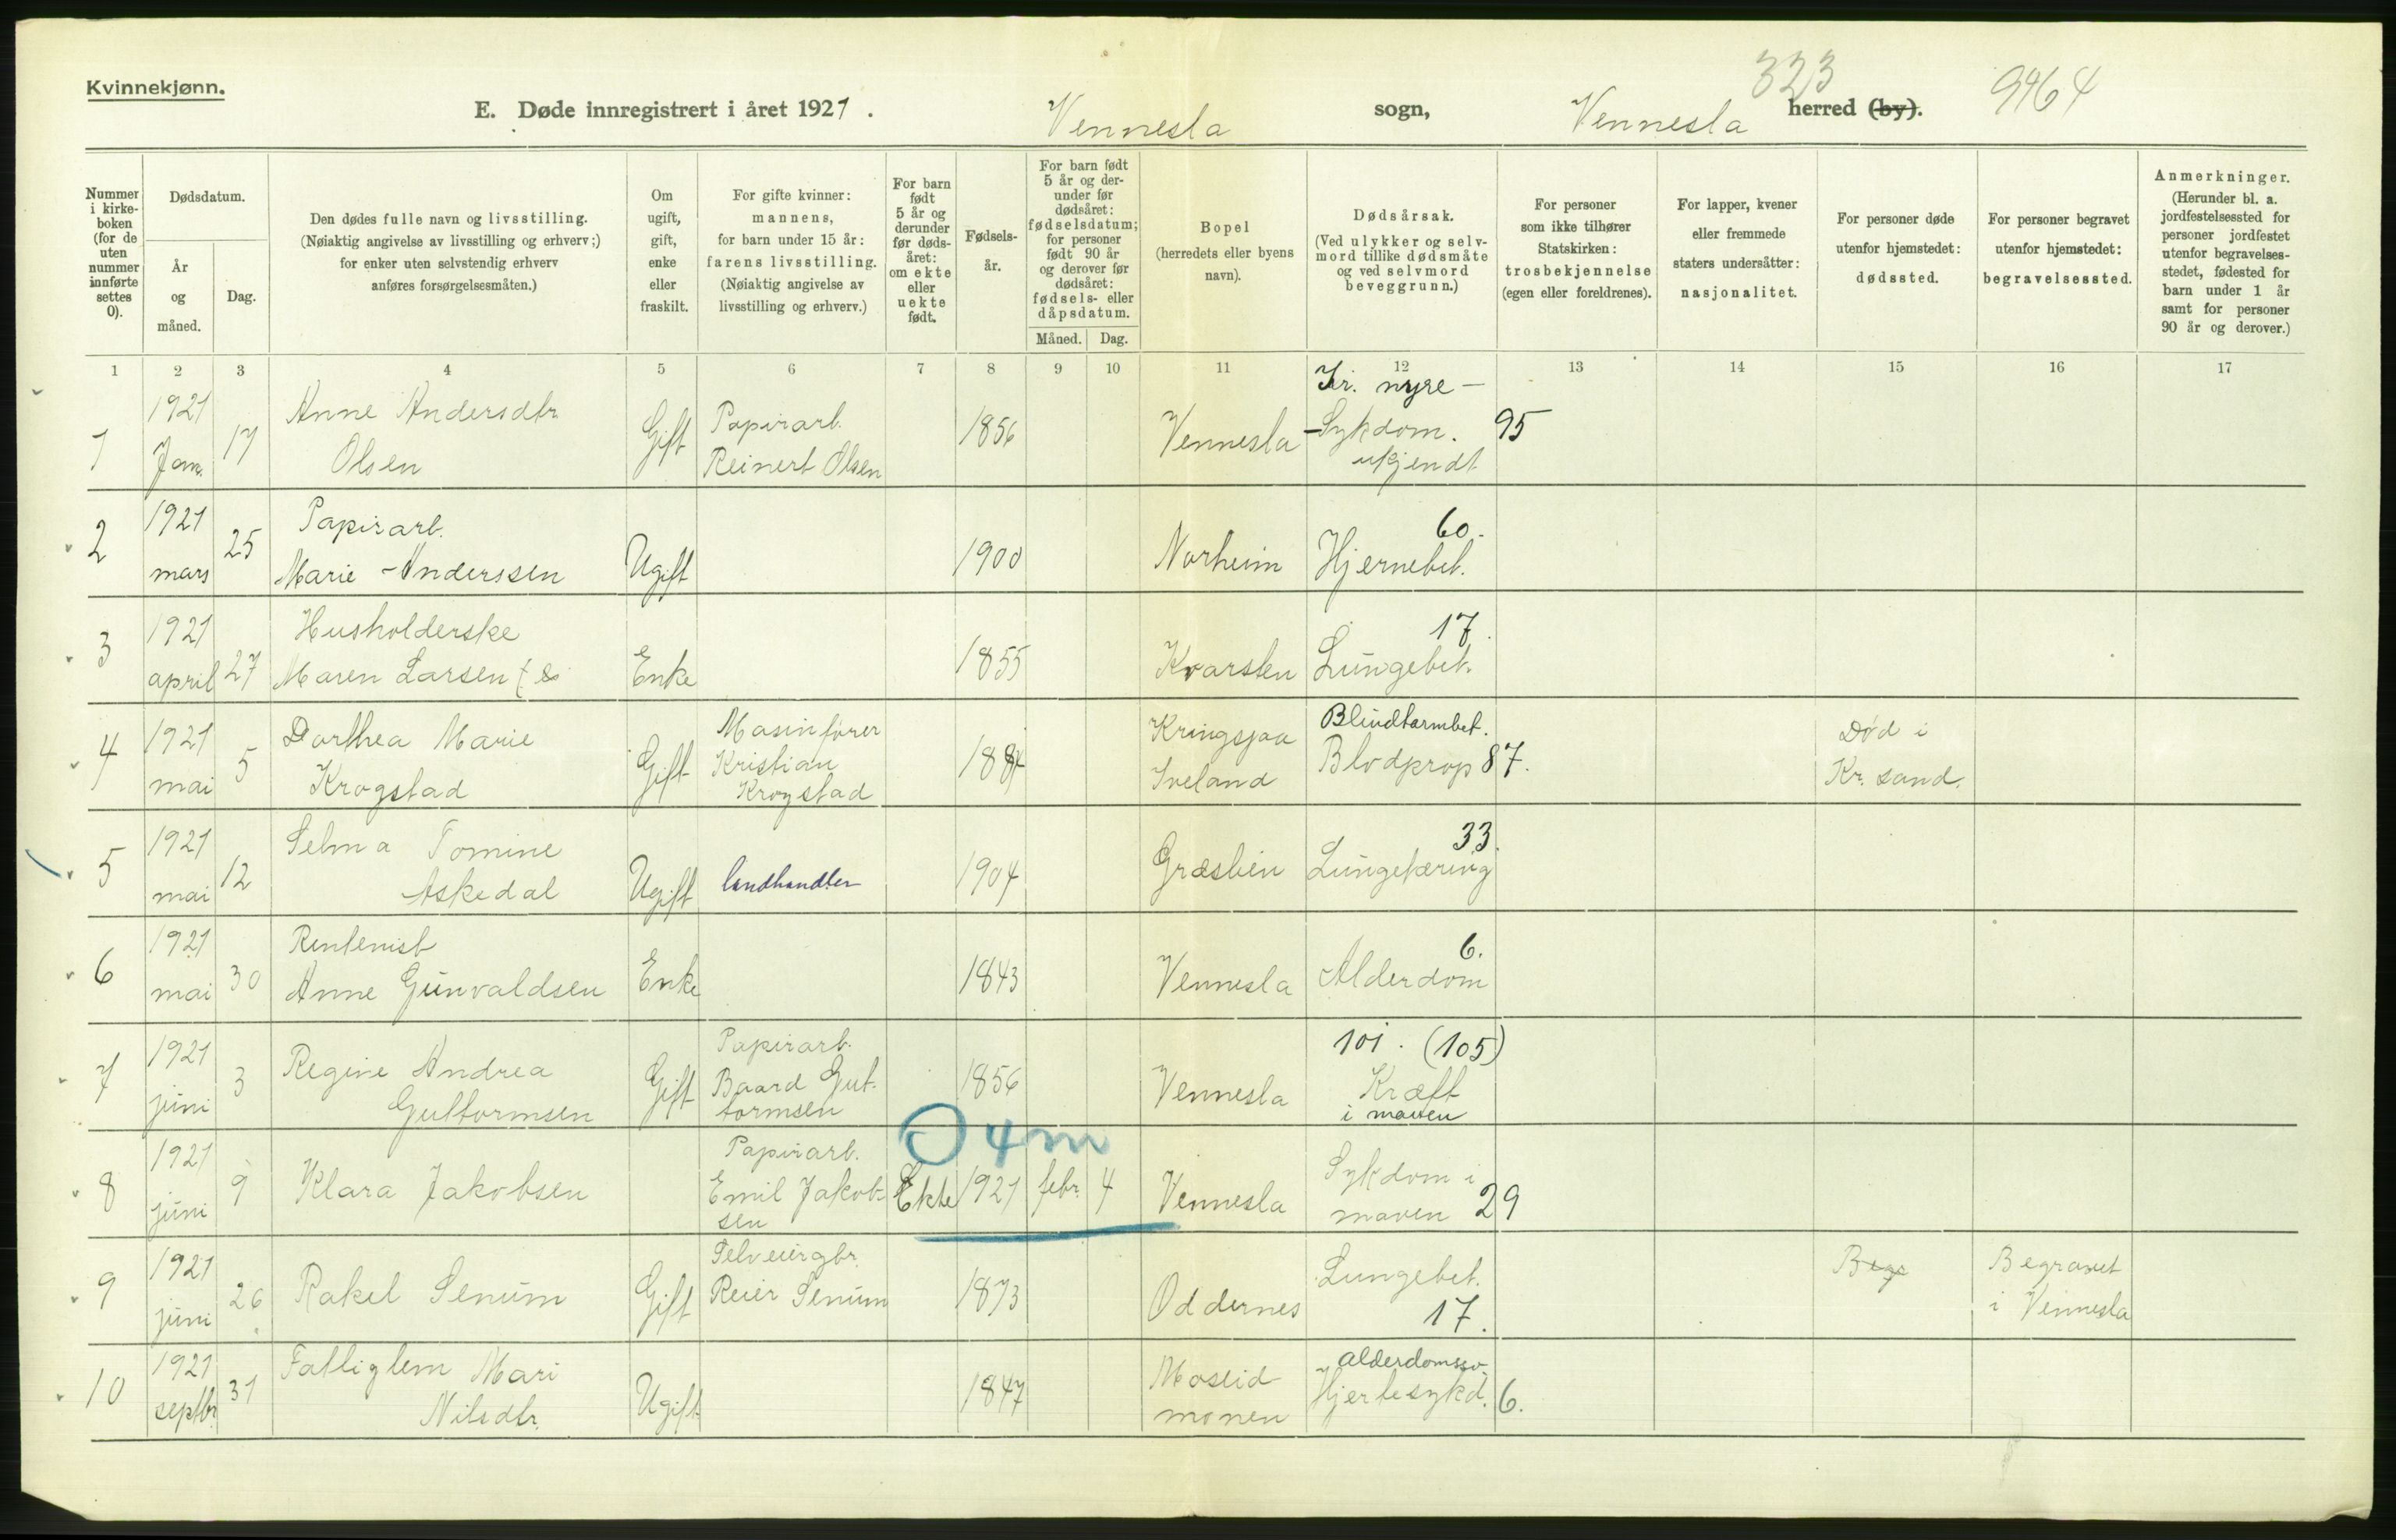 Kvinnekjønn.
323
9464
E. Døde innregistrert i året 1921. Vennesla sogn, Vennesla herred (by).
Nummer i kirkeboken (for de uten nummer innførte settes 0).
Dødsdatum.
År og måned.
Dag.
Den dødes fulle navn og livsstilling.
(Nøiaktig angivelse av livsstilling og erhverv;)
for enker uten selvstendig erhverv
anføres forsørgelsesmåten.)
Om ugift, gift, enke eller fraskilt.
For gifte kvinner: mannens, for barn under 15 år: farens livsstilling. (Nøiaktig angivelse av livsstilling og erhverv.)
For barn født 5 år og derunder før dødsåret: om ekte eller uekte født.
Fødselsår.
For barn født 5 år og derunder før dødsåret: fødselsdatum; for personer født 90 år og derover før dødsåret: fødsels- eller dåpsdatum.
Måned. Dag.
Bopel (herredets eller byens navn).
Dødsårsak. (Ved ulykker og selvmord tillike dødsmåte og ved selvmord beveggrunn.)
For personer som ikke tilhører Statskirken: trosbekjennelse (egen eller foreldrenes).
For lapper, kvener eller fremmede staters undersåtter: nasjonalitet.
For personer døde utenfor hjemstedet: dødssted.
For personer begravet utenfor hjemstedet: begravelsessted.
Anmerkninger. (Herunder bl. a. jordfestelsessted for personer jordfestet utenfor begravelsesstedet, fødested for barn under 1 år samt for personer 90 år og derover.)
1 2 3 4 5 6 7 8 9 10 11 12 13 14 15 16 17
1 1921 Jan. 17 Anne Andersdtr Olsen Gift Papirarb. Reinert Olsen 1856 Vennesla Kr. nyre- Sykdom. ukjendt 95
2 1921 mars 25 Papirarb. Marie Anderssen Ugift 1900 Norheim 60. Hjernebet.
3 1921 april 27 Husholderske Maren Larsen Enke 1855 Kvarsten 17. Lungebet.
4 1921 mai 5 Dorthea Marie Krogstad Gift Masinfører Kristian Krogstad 188 Kringsjaa Iveland Blindtarmbet. Blodprop 87. Død i Kr. sand.
5 1921 mai 12 Selma Tomine Askedal Ugift landhandler 1904 Græslien 33. Lungetæring
6 1921 mai 30 Rentenist Anne Gunvaldsen Enke 1843 Vennesla 6. Alderdom
7 1921 juni 3 Regine Andrea Guttormsen Gift Papirarb. Baard Guttormsen 1856 Vennesla 101. (105) Kræft i maven
0 4 m
8 1921 juni 9 Klara Jakobsen Papirarb. Emil Jakobsen Ekte 1921 febr. 4 Vennesla Sykdom i maven 29
9 1921 juni 26 Rakel Senum Gift Selveiergbr. Reier Senum 1873 Oddernes Lungebet. 17. Begr Begravet i Vennesla
10 1921 septbr. 31 Fattiglem Mari Nilsdtr. Ugift 1847 Moseid monen alderdomssv. Hjertesykd. 6.